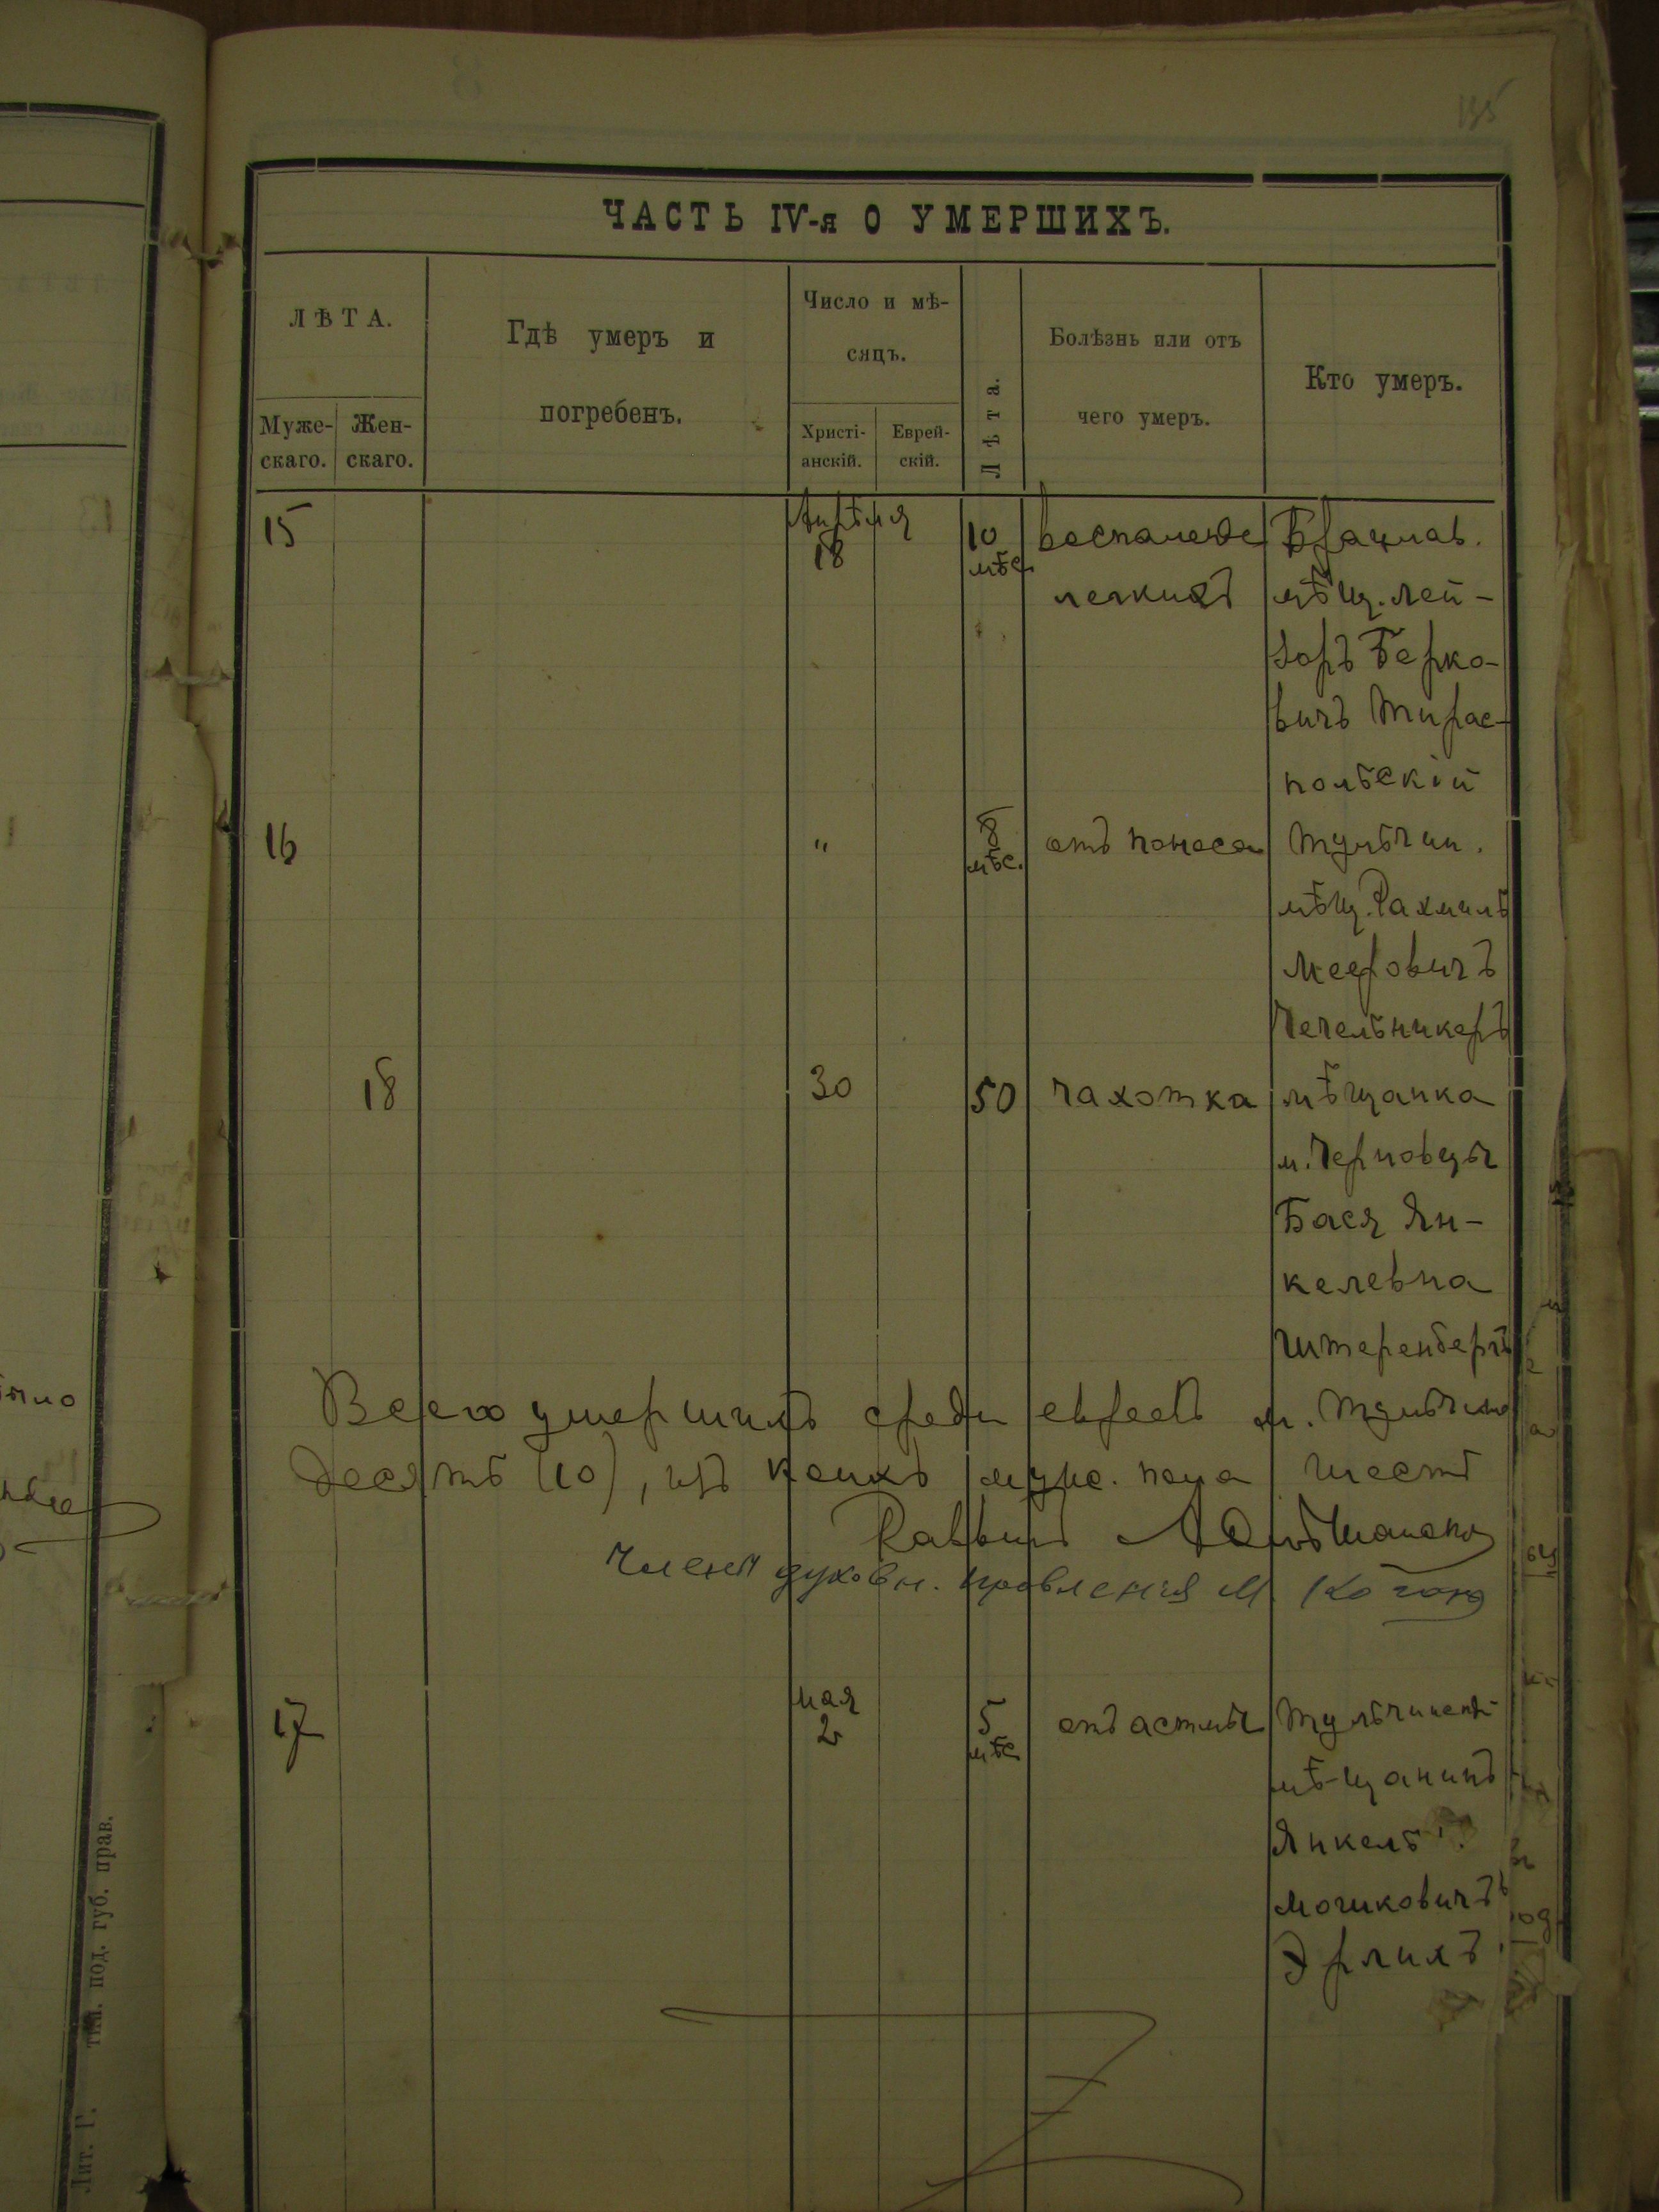 135
ЧАСТЬ IV-я О УМЕРШИХЪ.
ЛѢТА.
Муже-скаго.
Жен-скаго.
Гдѣ умеръ и
погребенъ.
Число и мѣ-
сяцъ.
Христі-анскій.
Еврей-скій.
Лѣта.
Болѣзнь или отъ
чего умеръ.
Кто умеръ.
15 Апрѣля 18 10 мѣс. воспаленіе Брацлав.
легкихъ мѣщ. Лей-
зоръ Берко-
вичъ Тирас-
польскій
16 " 8 мѣс. отъ поноса Тульчин.
мѣщ. Рахмиль
Мееровичъ
Чечельникеръ
18 30 50 чахотка мѣщанка
м. Черновцы
Бася Ян-
келевна
Штеренбергъ
Всего умершихъ среди евреевъ м. Тульчина
десять (10), изъ коихъ муж. пола шесть
Раввинъ
Членъ духовн. правленія М. Коганъ
17 мая 2 5 мѣс. отъ астмы Тульчинскій
мѣщанинъ
Янкель
Мошковичъ
Эрлихъ
Лит. Г. тип. под. губ. прав.